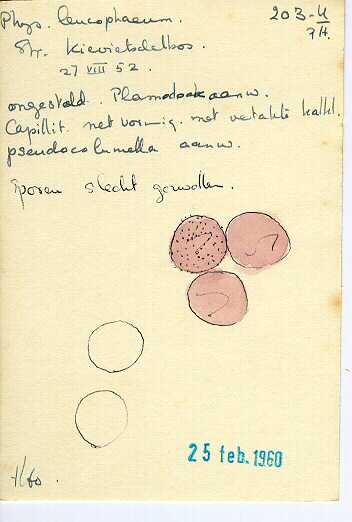 Phys. leucophaeum. 203-4
Str. Kievietsdelbos. 74.
27 VIII 52.
ongesteld. Plasmodoek aanw.
Capillit. netvormig. met vertakte kalkl.
pseudocolumella aanw.
Sporen slecht gezwollen.
25 feb. 1960
1/60.